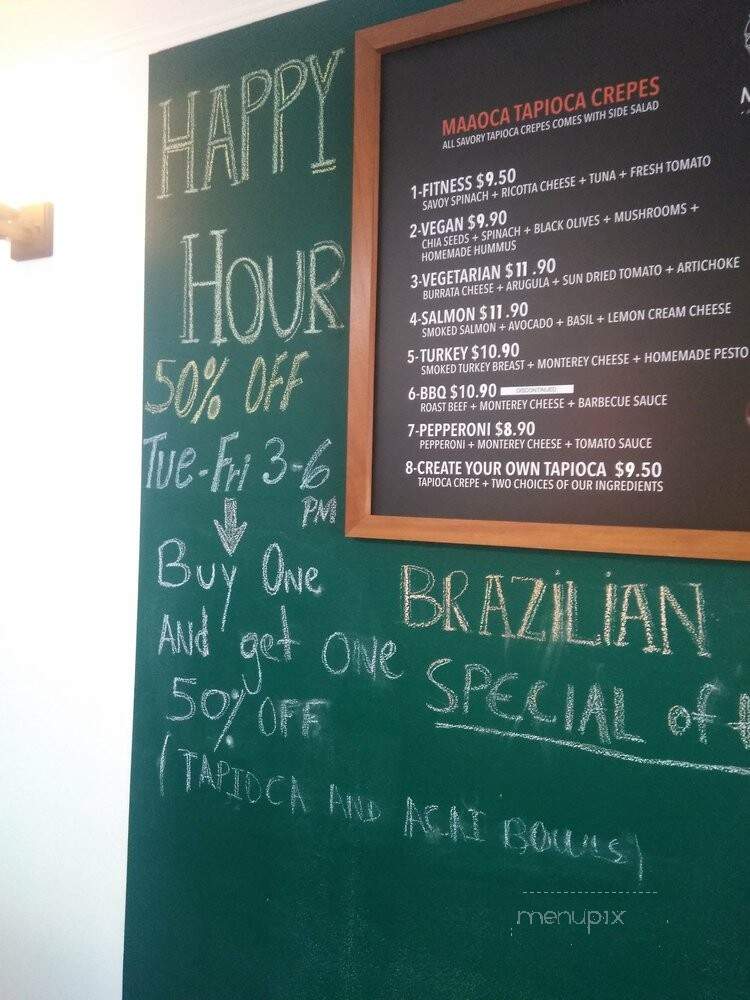 HAPPY
HOUR
50% OFF
TUE-FRi 3-6
PM
BUY ONE
AND get ONE
50% OFF
(TAPIOCA AND AÇAI BOWLS)
MAAOCA TAPIOCA CREPES
ALL SAVORY TAPIOCA CREPES COMES WITH SIDE SALAD
1-FITNESS $9.50
SAVOY SPINACH + RICOTTA CHEESE + TUNA + FRESH TOMATO
2-VEGAN $9.90
CHIA SEEDS + SPINACH + BLACK OLIVES + MUSHROOMS +
HOMEMADE HUMMUS
3-VEGETARIAN $11.90
BURRATA CHEESE + ARUGULA + SUN DRIED TOMATO + ARTICHOKE
4-SALMON $11.90
SMOKED SALMON + AVOCADO + BASIL + LEMON CREAM CHEESE
5-TURKEY $10.90
SMOKED TURKEY BREAST + MONTEREY CHEESE + HOMEMADE PESTO
6-BBQ $10.90 DISCONTINUED
ROAST BEEF + MONTEREY CHEESE + BARBECUE SAUCE
7-PEPPERONI $8.90
PEPPERONI + MONTEREY CHEESE + TOMATO SAUCE
8-CREATE YOUR OWN TAPIOCA $9.50
TAPIOCA CREPE + TWO CHOICES OF OUR INGREDIENTS
BRAZiLiAN
SPECIAL of
menupix